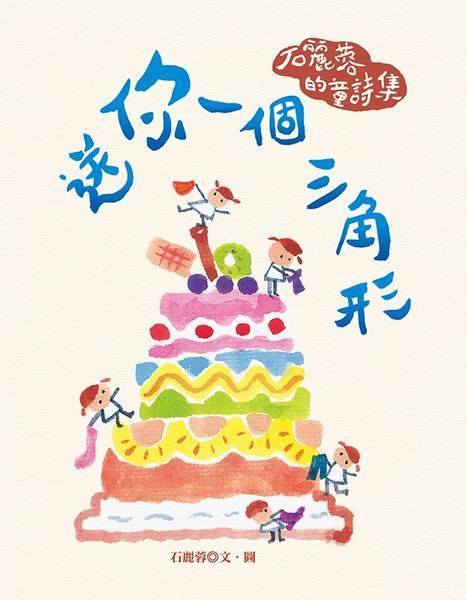 石麗蓉
的童詩集
送你一個三角形
石麗蓉◎文‧圖